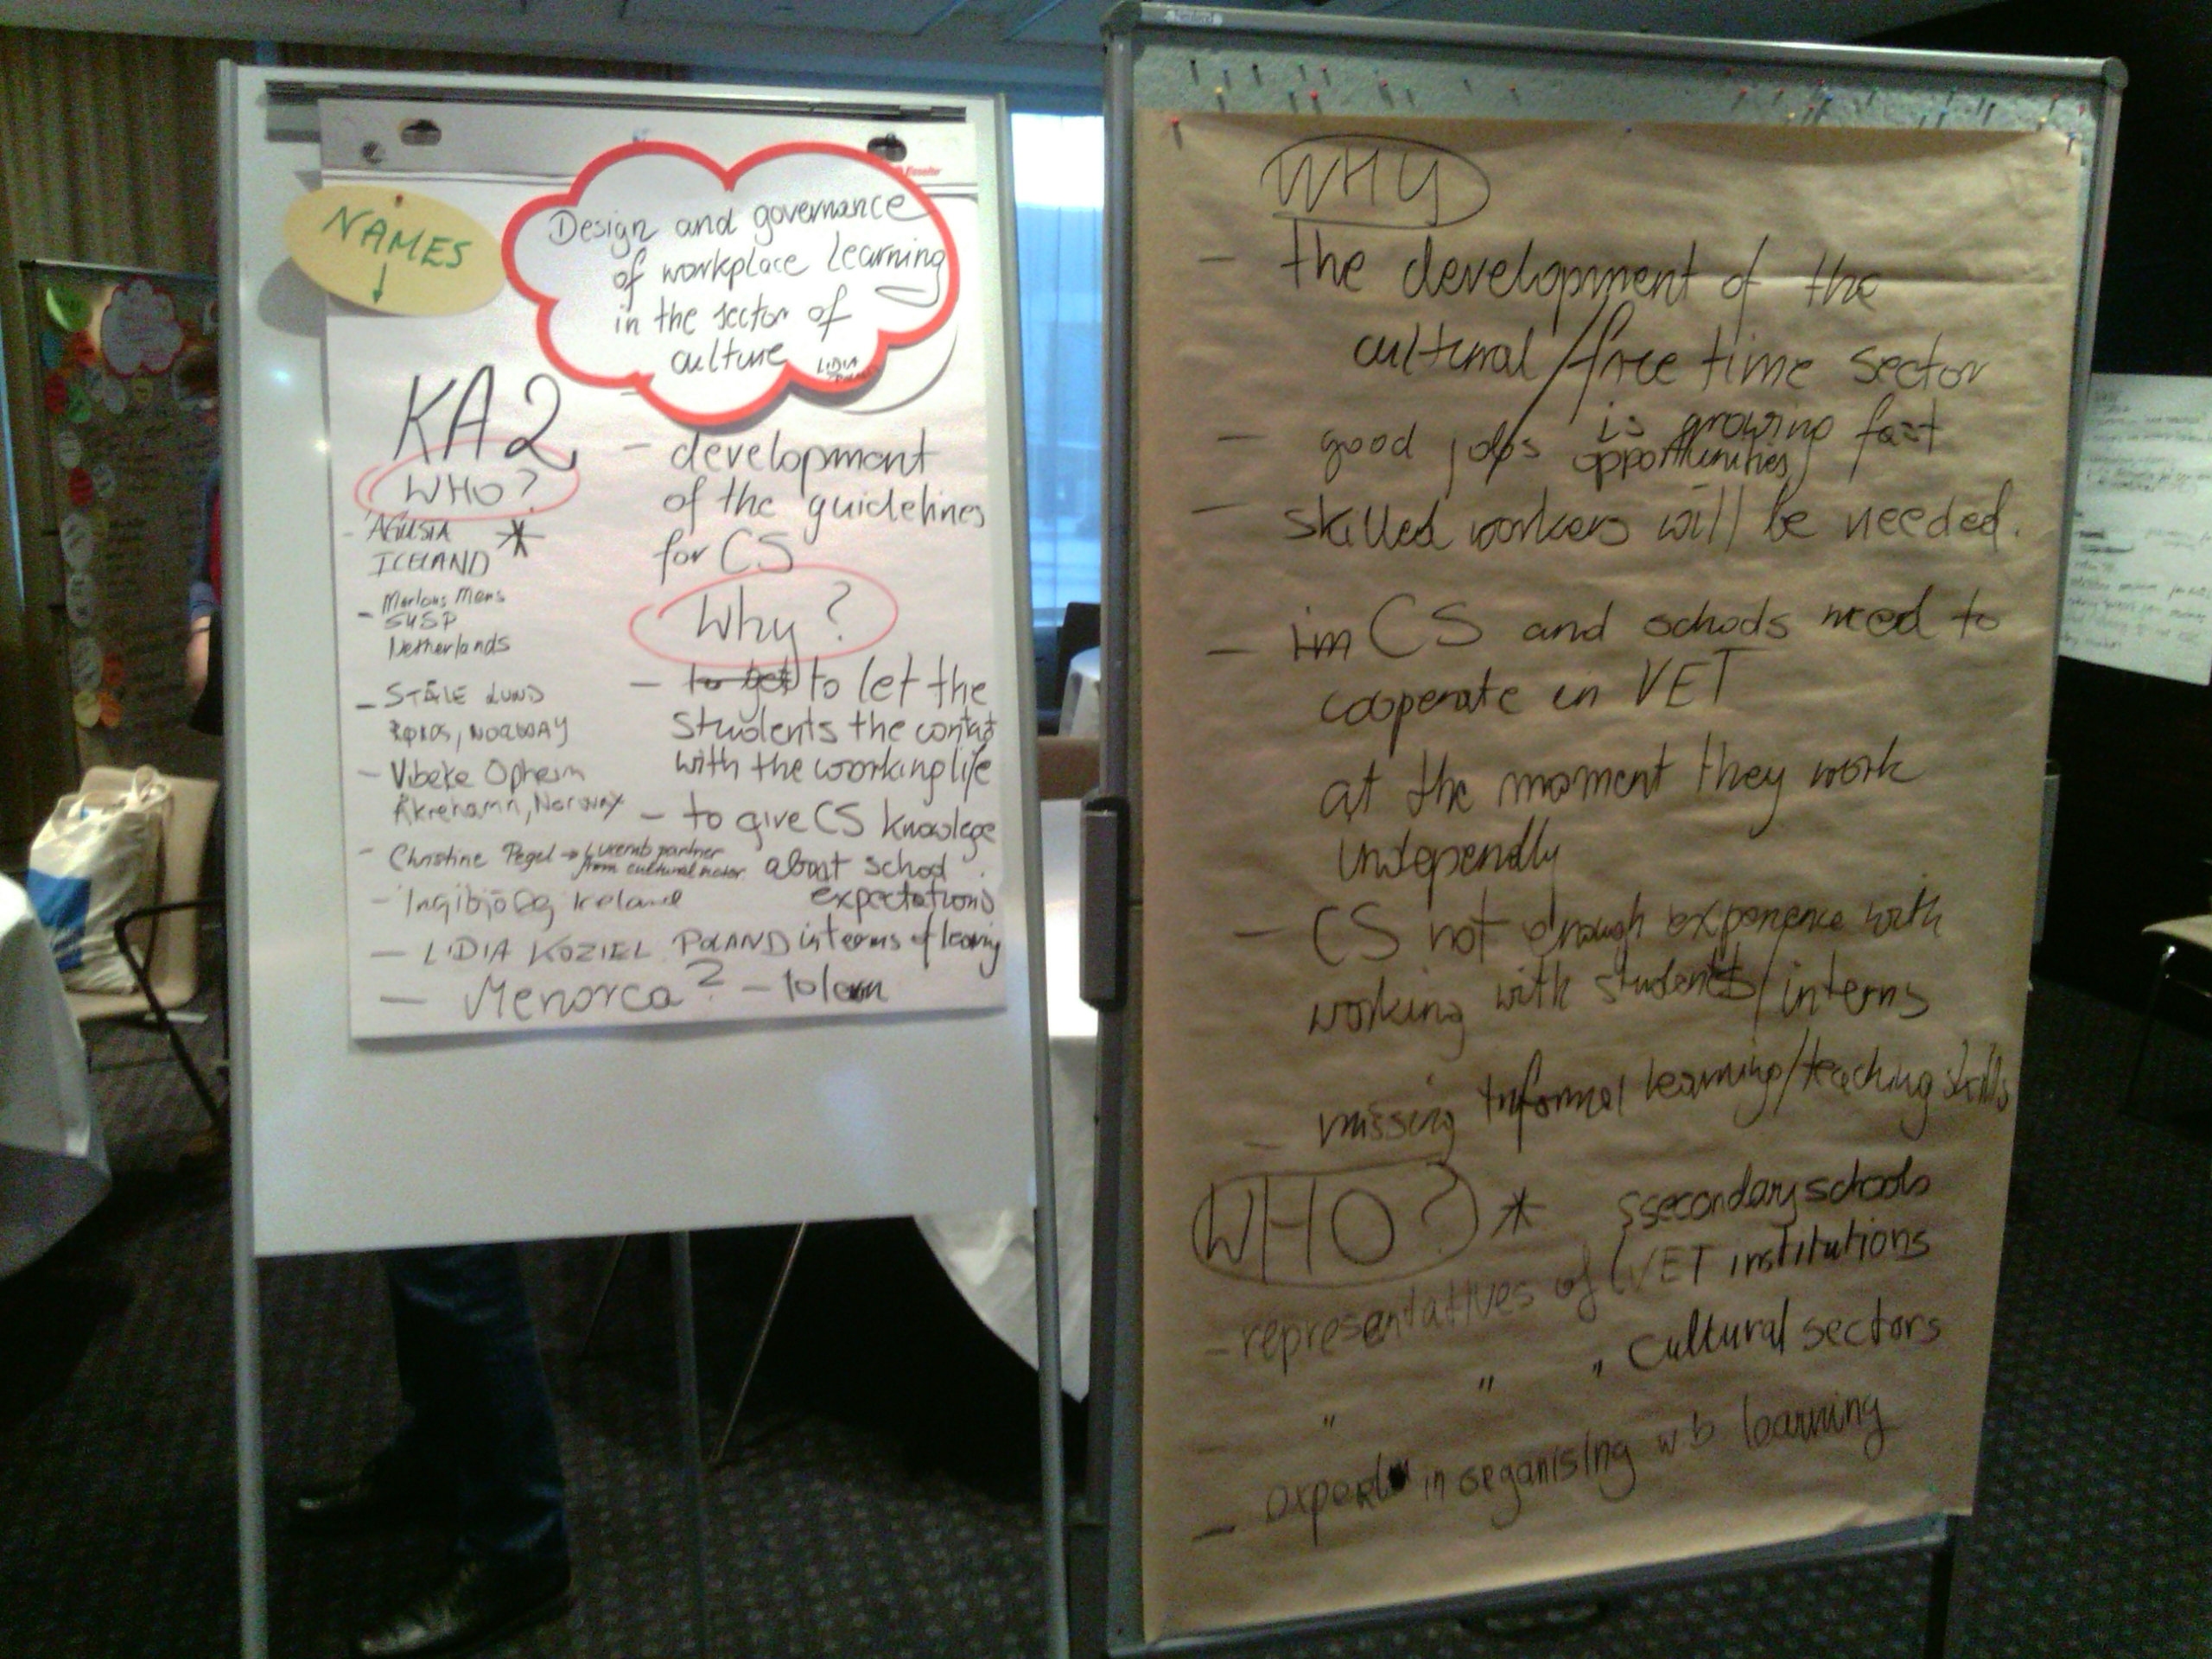 NAMES
Design and governance
of workplace learning
in the sector of
culture
LIDIA
KA2
WHO?
- ÁGUSTA
ICELAND
*
- Marlous Mens
SVSP
Netherlands
- STÅLE LUND
RØROS, NORWAY
- Vibeke Opheim
Åkrehamn, Norway
- Christine Pegel → Luxemb partner
from cultural
- Ingibjörg Iceland
- LIDIA KOZIEL POLAND
- Menorca?
- development
of the guidelines
for CS
Why?
- to get to let the
students the contact
with the working life
- to give CS knowlege
about school
expectations
in terms of learning
- to learn
WHY
- the development of the
cultural/free time sector
is growing fast
- good jobs opportunities
- skilled workers will be needed.
- im CS and schools need to
cooperate in VET
at the moment they work
undependly
- CS not enough experience with
working with students/interns
- missing informal learning/teaching skills
WHO? *
secondary schools
- representatives of VET institutions
- " " " Cultural sectors
- expert in organising wb learning